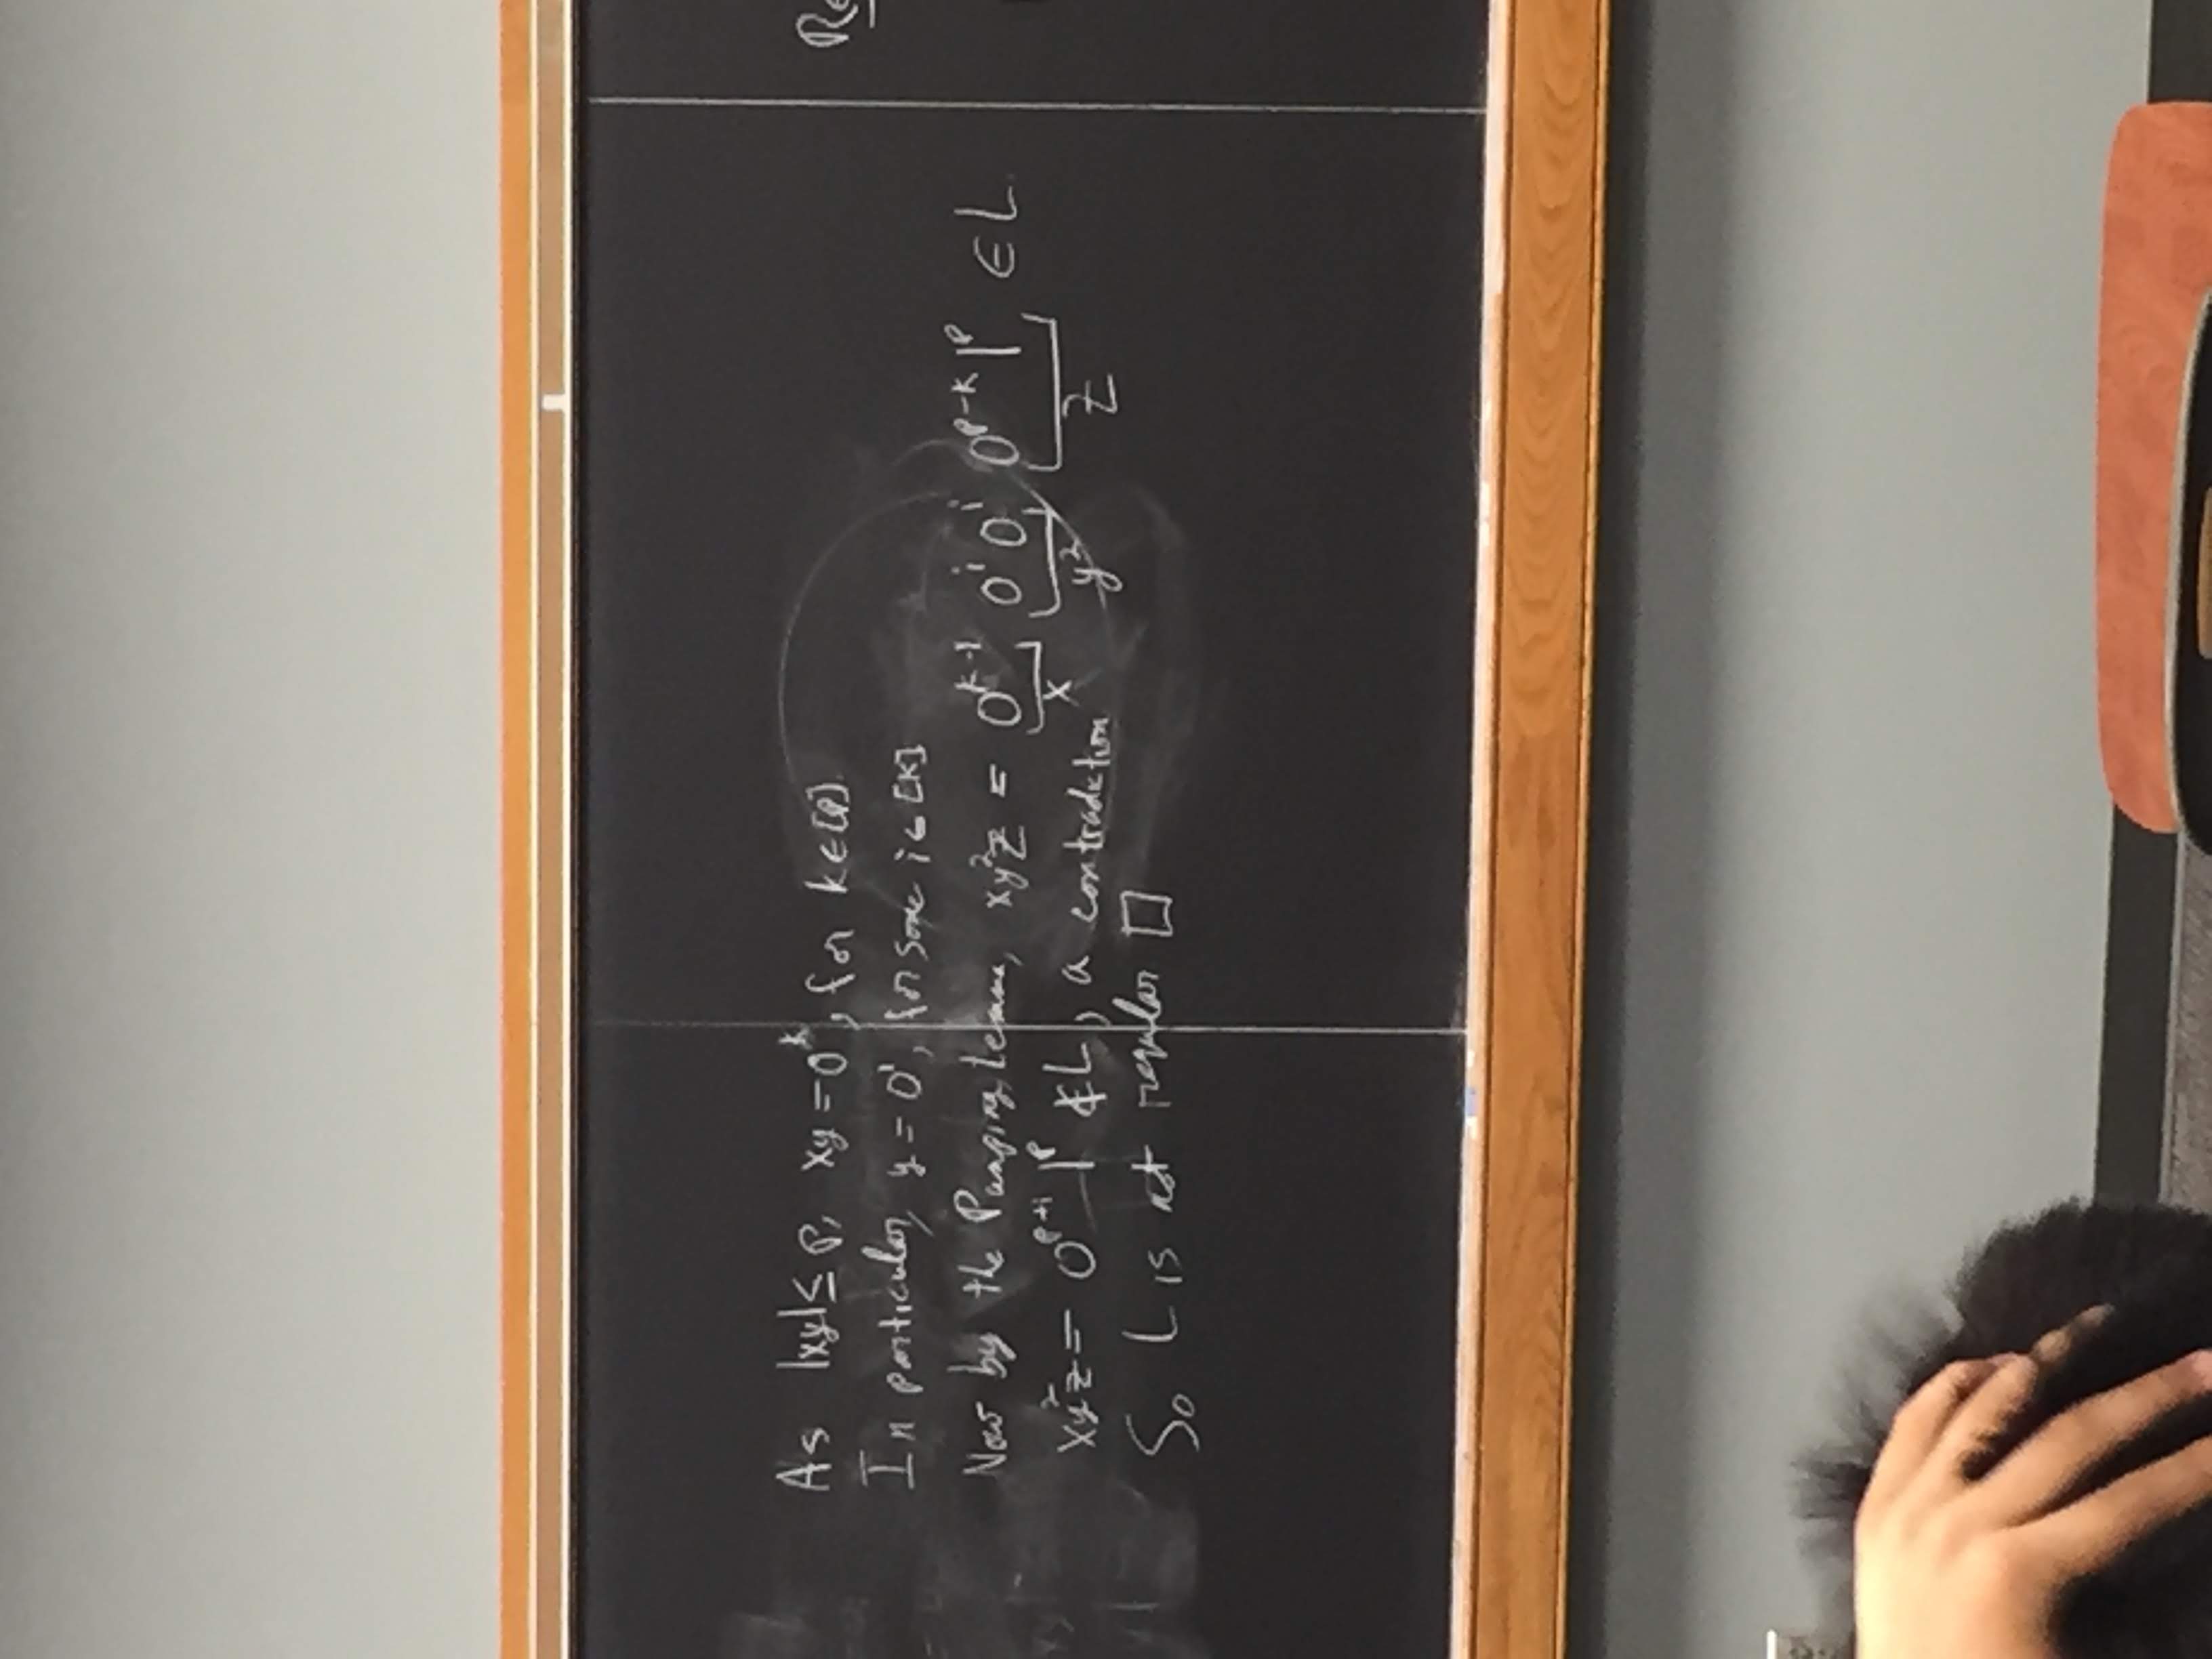 As |xy| ≤ p, xy = 0^k, for k ∈ [p].
In particular, y = 0^i, for some i ∈ [k]
Now by the Pumping Lemma, xy²z = 0^{k-i} 0^i 0^i 0^{p-k} 1^p ∈ L.
x y² z
xy²z = 0^{p+i} 1^p ∉ L, a contradiction
So L is not regular □
Re